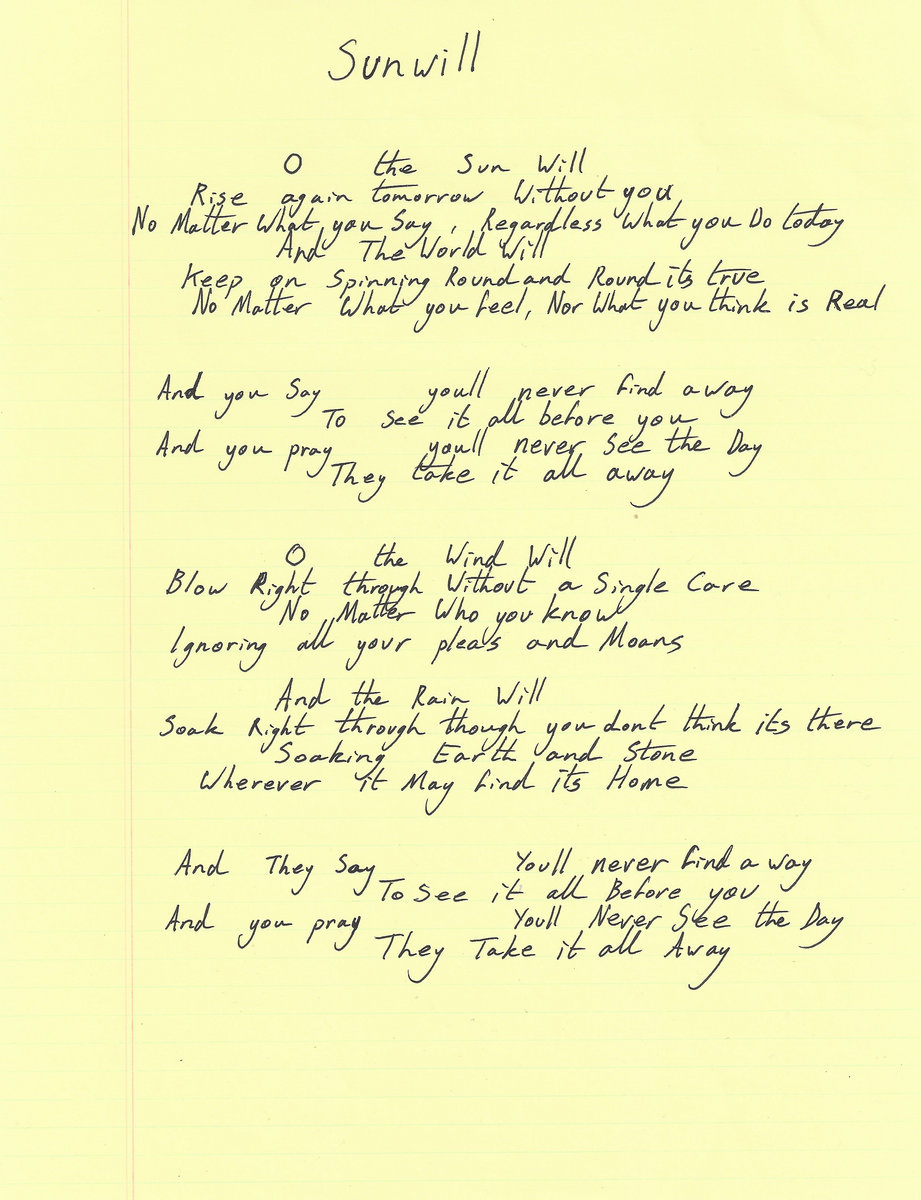 Sunwill
O the Sun Will
Rise again tomorrow Without you
No Matter What you Say, Regardless What you Do today
And The World Will
Keep on Spinning Round and Round its true
No Matter What you feel, Nor What you think is Real
And you Say youll never find away
To See it all before you
And you pray youll never See the Day
They take it all away
O the Wind Will
Blow Right through Without a Single Care
No Matter Who you know
Ignoring all your plea's and Moans
And the Rain Will
Soak Right through though you dont think its there
Soaking Earth and Stone
Wherever it May find its Home
And They Say Youll never find a way
To See it all Before you
And you pray Youll Never See the Day
They Take it all Away